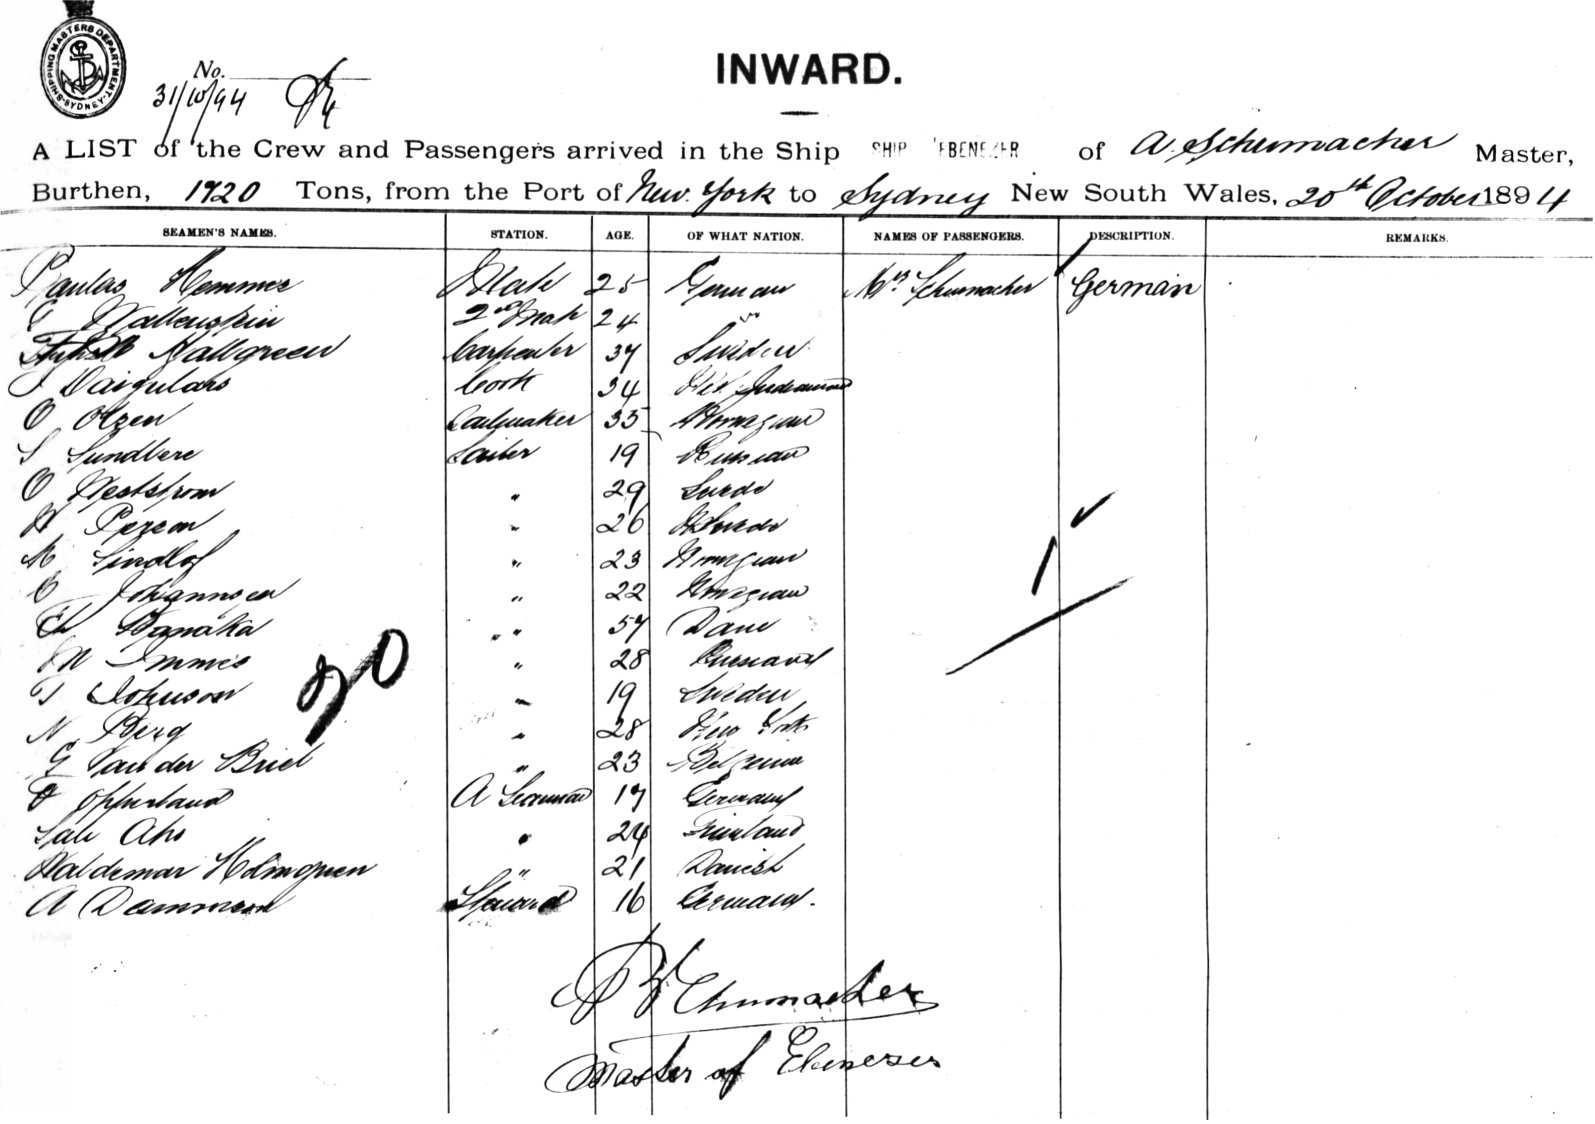 SHIPPING MASTERS DEPARTMENT. SYDNEY.
No.
31/10/94
INWARD.
A LIST of the Crew and Passengers arrived in the Ship SHIP EBENEZER of A. Schumacher Master,
Burthen, 1920 Tons, from the Port of New York to Sydney New South Wales, 20th October 1894
SEAMEN'S NAMES. STATION. AGE. OF WHAT NATION. NAMES OF PASSENGERS. DESCRIPTION. REMARKS.
Hemmes Mate 25 German Mrs Schumacher German
Wallenstein 2nd Mate 24 "
Hallgreen Carpenter 37 Sweden
Cook 34
O Olzen Sailmaker 35 Norwegian
S Sundbere Sailor 19 Russian
O Westrom " 29 Swede
Perzon " 26 Swede
Lindlof " 23 Norwegian
Johannsen " 22 Norwegian
" 57 Dane
M " 28 Russian
T Johnson " 19 Sweden
N Berg " 28 New York
G Van der Briel " 23 Belgium
A Seaman 17 Germany
Aho " 24 Finland
Waldemar Holmgreen " 21 Danish
A Dammann Steward 16 Germany.
20
1
A Schumacher
Master of Ebenezer